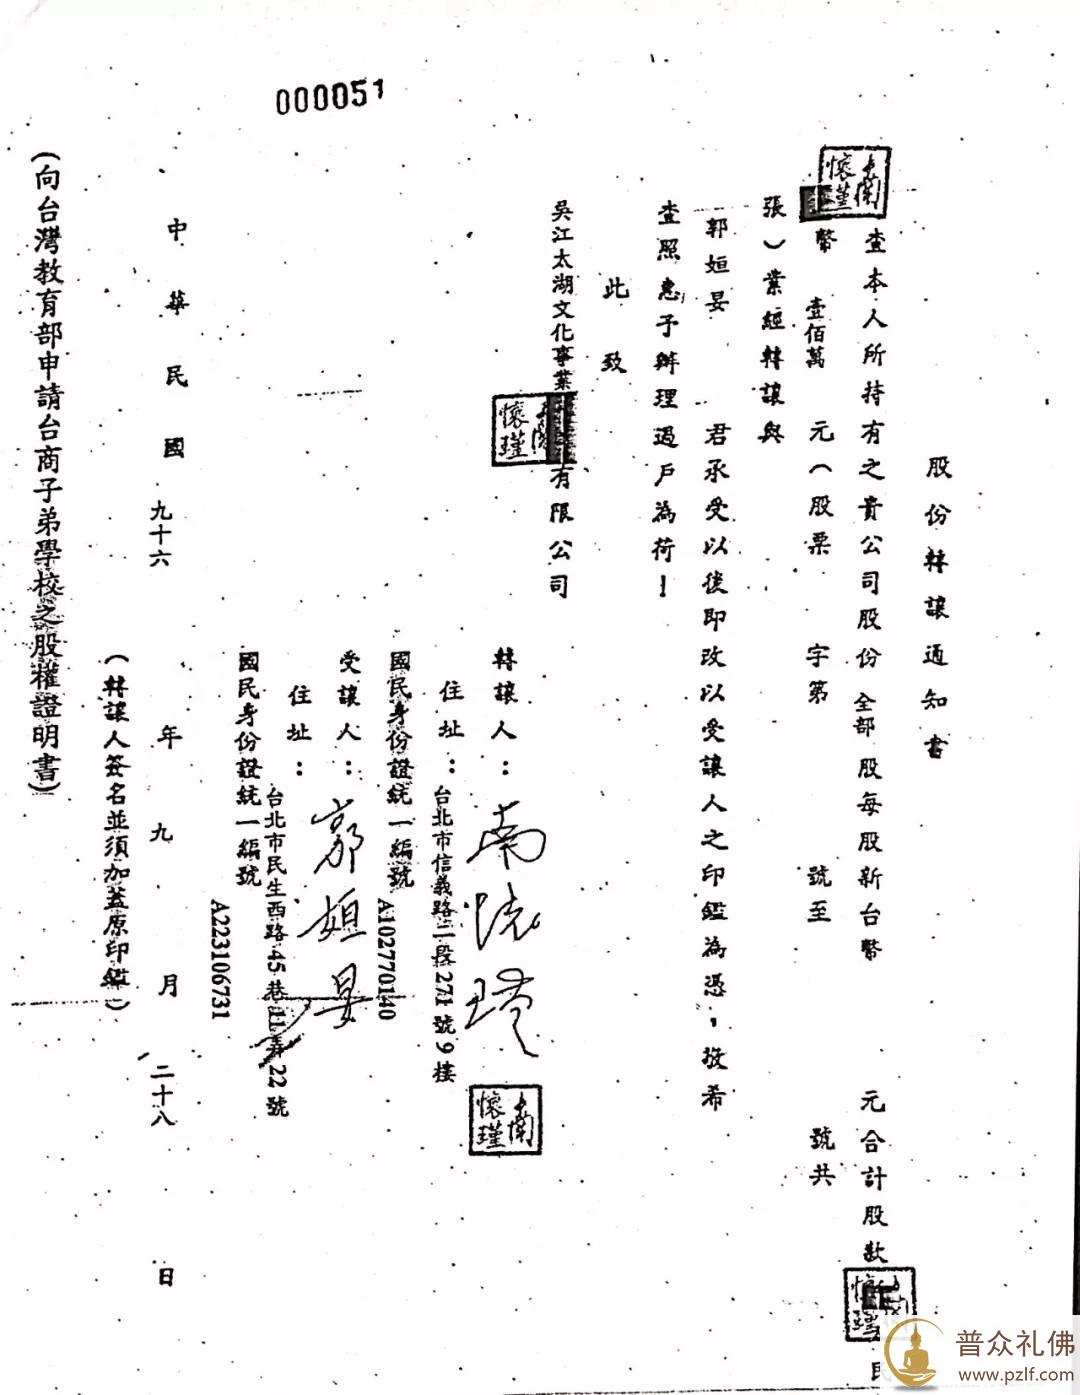 000051
股份轉讓通知書
查本人所持有之貴公司股份 全部 股每股新台幣 元合計股款
幣 壹佰萬 元（股票 字第 號至 號共
張）業經轉讓與
郭姮妟 君承受以後即改以受讓人之印鑑為憑，敬希
查照惠予辦理過戶為荷！
此致
吳江太湖文化事業 有限公司
轉讓人：南懷瑾
住址：台北市信義路二段271號9樓
國民身份證統一編號 A102770140
受讓人：郭姮妟
住址：台北市民生西路45巷11弄22號
國民身份證統一編號 A223106731
中華民國 九十六 年 九 月 二十八 日
（轉讓人簽名並須加蓋原印鑑）
（向台灣教育部申請台商子弟學校之股權證明書）
南懷瑾
南懷瑾
南懷瑾
南懷瑾
普众礼佛
www.pzlf.com